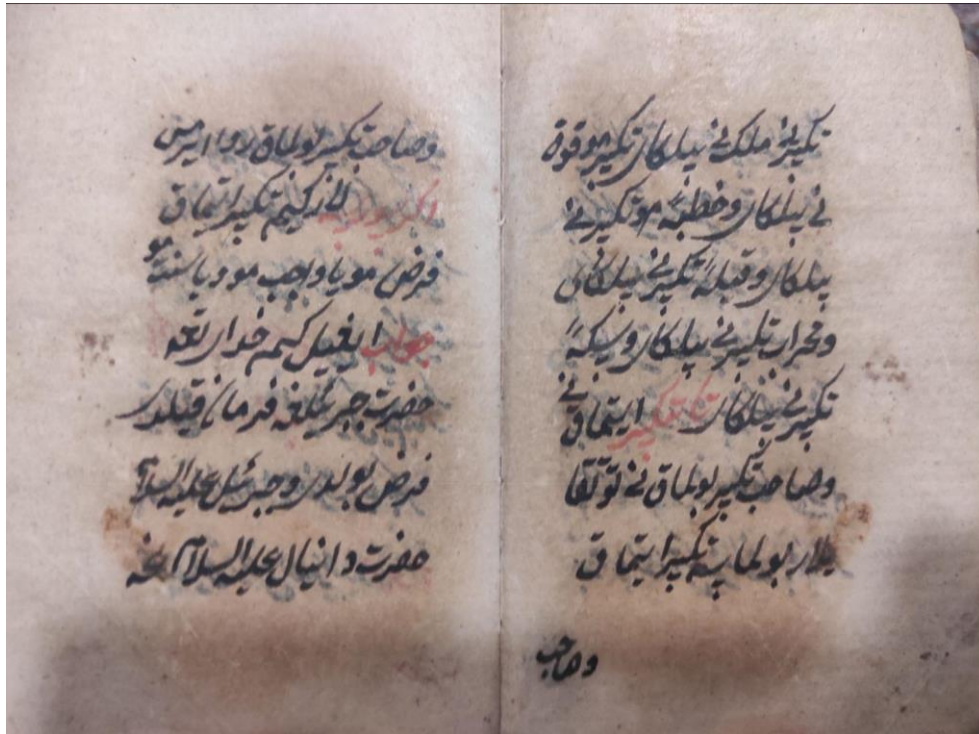 تکبیرنے ملک نے بیلکای تکبیر موقوة
نے بیلکای وخطبهٔ مو تکبیرنے
بیلکای وقبلهٔ تکبیرنے بیلکای
ومحراب تکبیرنے بیلکای وسیکهٔ
تکبیرنے بیلکای تکبیر ایتماق نے
وصاحب تکبیر بولماق نے
بولماسه تکبیر ایتماق
وصاحب
وصاحب تکبیر بولماق روا ایرمس
اکر تکبیر ایتماق
فرض مو یا واجب مو ویا سنت مو
جواب ایغیل کیم خدای تعه
حضرت جبرئیلغه فرمان قیلدی
فرض بولدی وجبرئیل علیه السلام
حضرت دانیال علیه السلام غه